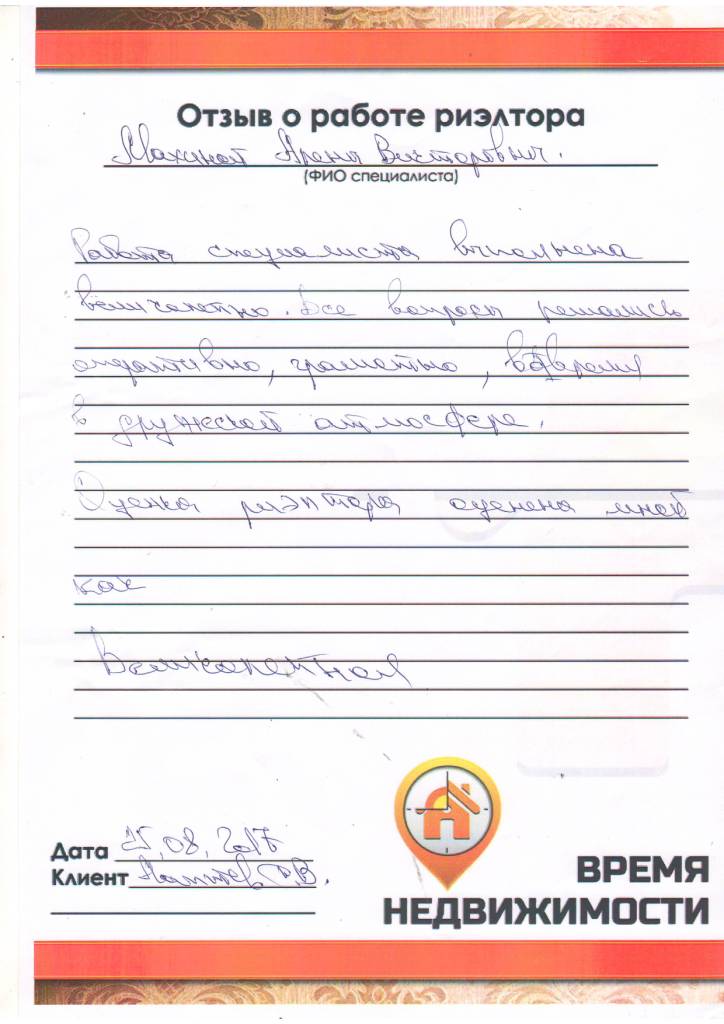 Отзыв о работе риэлтора
Викторович.
(ФИО специалиста)
Работа специалиста выполнена
великолепно. Все вопросы решались
оперативно, грамотно, вовремя
в дружеской атмосфере.
Оценка риэлтора оценена мной
как
Великолепная
Дата 25.08.2017
Клиент
ВРЕМЯ
НЕДВИЖИМОСТИ